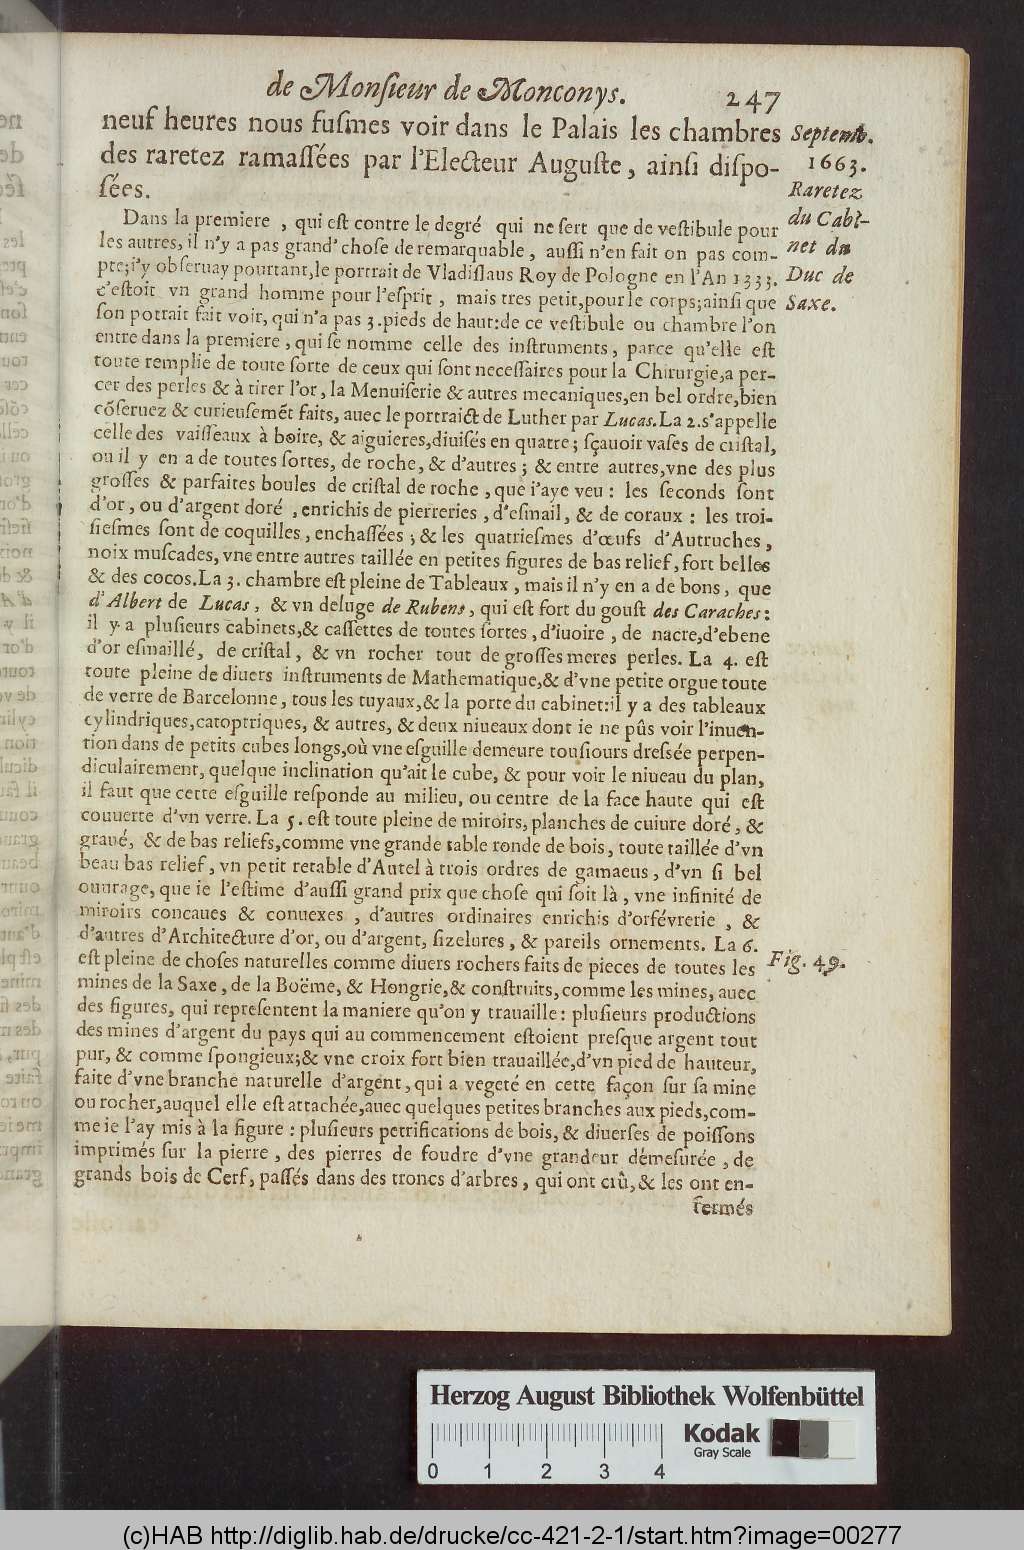 de Monſieur de Monconys. 247
neuf heures nous fuſmes voir dans le Palais les chambres
des raretez ramaſſées par l'Electeur Auguſte, ainſi diſpo-
ſées.
Septemb.
1663.
Raretez
du Cabi-
net du
Duc de
Saxe.
Dans la premiere, qui eſt contre le degré qui ne ſert que de veſtibule pour
les autres, il n'y a pas grand' choſe de remarquable, auſſi n'en fait on pas com-
pte; i'y obſeruay pourtant, le portrait de Vladiſlaus Roy de Pologne en l'An 1333.
c'eſtoit vn grand homme pour l'eſprit, mais tres petit, pour le corps; ainſi que
ſon potrait fait voir, qui n'a pas 3. pieds de haut: de ce veſtibule ou chambre l'on
entre dans la premiere, qui ſe nomme celle des inſtruments, parce qu'elle eſt
toute remplie de toute ſorte de ceux qui ſont neceſſaires pour la Chirurgie, a per-
cer des perles & à tirer l'or, la Menuiſerie & autres mecaniques, en bel ordre, bien
cõſeruez & curieuſemẽt faits, auec le portraict de Luther par Lucas. La 2. s'appelle
celle des vaiſſeaux à boire, & aiguieres, diuiſés en quatre; ſçauoir vaſes de criſtal,
ou il y en a de toutes ſortes, de roche, & d'autres; & entre autres, vne des plus
groſſes & parfaites boules de criſtal de roche, que i'aye veu: les ſeconds ſont
d'or, ou d'argent doré, enrichis de pierreries, d'eſmail, & de coraux: les troi-
ſieſmes ſont de coquilles, enchaſſées; & les quatrieſmes d'œufs d'Autruches,
noix muſcades, vne entre autres taillée en petites figures de bas relief, fort belles
& des cocos. La 3. chambre eſt pleine de Tableaux, mais il n'y en a de bons, que
d'Albert de Lucas, & vn deluge de Rubens, qui eſt fort du gouſt des Caraches:
il y a pluſieurs cabinets, & caſſettes de toutes ſortes, d'iuoire, de nacre, d'ebene
d'or eſmaillé, de criſtal, & vn rocher tout de groſſes meres perles. La 4. eſt
toute pleine de diuers inſtruments de Mathematique, & d'vne petite orgue toute
de verre de Barcelonne, tous les tuyaux, & la porte du cabinet: il y a des tableaux
cylindriques, catoptriques, & autres, & deux niueaux dont ie ne pûs voir l'inuen-
tion dans de petits cubes longs, où vne eſguille demeure touſiours dreſſée perpen-
diculairement, quelque inclination qu'ait le cube, & pour voir le niueau du plan,
il faut que cette eſguille reſponde au milieu, ou centre de la face haute qui eſt
couuerte d'vn verre. La 5. eſt toute pleine de miroirs, planches de cuiure doré, &
graué, & de bas reliefs, comme vne grande table ronde de bois, toute taillée d'vn
beau bas relief, vn petit retable d'Autel à trois ordres de gamaeus, d'vn ſi bel
ouurage, que ie l'eſtime d'auſſi grand prix que choſe qui ſoit là, vne infinité de
miroirs concaues & conuexes, d'autres ordinaires enrichis d'orfévrerie, &
d'autres d'Architecture d'or, ou d'argent, ſizelures, & pareils ornements. La 6.
eſt pleine de choſes naturelles comme diuers rochers faits de pieces de toutes les
Fig. 49.
mines de la Saxe, de la Boëme, & Hongrie, & conſtruits, comme les mines, auec
des figures, qui repreſentent la maniere qu'on y trauaille: pluſieurs productions
des mines d'argent du pays qui au commencement eſtoient preſque argent tout
pur, & comme ſpongieux; & vne croix fort bien trauaillée, d'vn pied de hauteur,
faite d'vne branche naturelle d'argent, qui a vegeté en cette façon ſur ſa mine
ou rocher, auquel elle eſt attachée, auec quelques petites branches aux pieds, com-
me ie l'ay mis à la figure: pluſieurs petrifications de bois, & diuerſes de poiſſons
imprimés ſur la pierre, des pierres de foudre d'vne grandeur démeſurée, de
grands bois de Cerf, paſſés dans des troncs d'arbres, qui ont crû, & les ont en-
fermés
Herzog August Bibliothek Wolfenbüttel
Kodak
Gray Scale
0 1 2 3 4
(c)HAB http://diglib.hab.de/drucke/cc-421-2-1/start.htm?image=00277